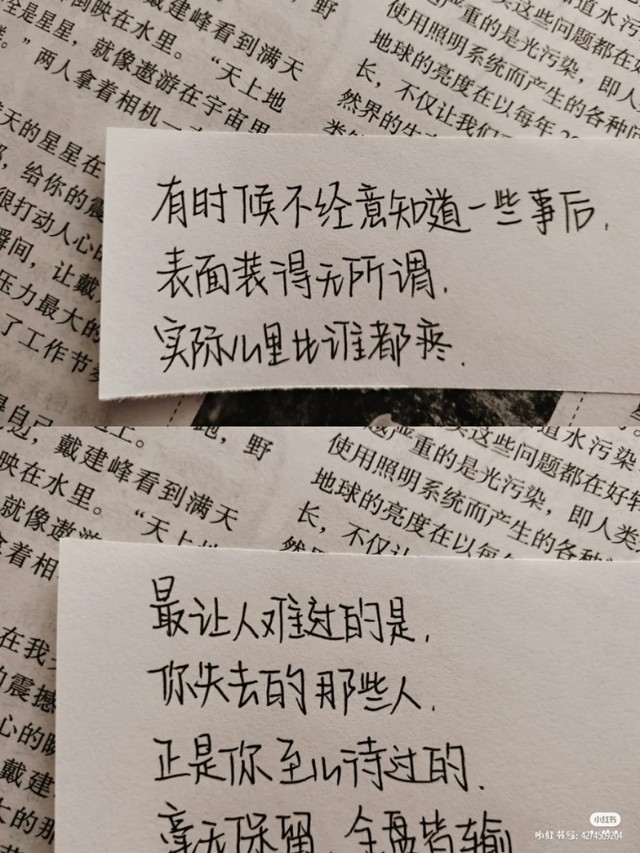 野
倒映在水里。
戴建峰看到满天
全是星星，就像遨游在宇宙里
“天上地
。”两人拿着相机一
天的星星在
，给你的震
很打动人心的
瞬间，让戴
压力最大的
了工作节奏
道水污染
这些问题都在好
使用照明系统而产生的各种问
严重的是光污染，即人
地球的亮度在以每年
长，不仅让我们
然界的生
有时候不经意知道一些事后.
表面装得无所谓.
实际心里比谁都疼.
是自己
跑，野
戴建峰看到满天
映在水里。
“天上地
就像遨游
拿着相
在我
的震撼
心的瞬
戴建
大的那
道水污染
这些问题都在好转
严重的是光污染，即人类
使用照明系统而产生的各种
地球的亮度在以每年
长，不仅让
最让人难过的是.
你失去的那些人.
正是你至心待过的.
毫无保留 全盘皆输
小红书
小红书号: 4274509204